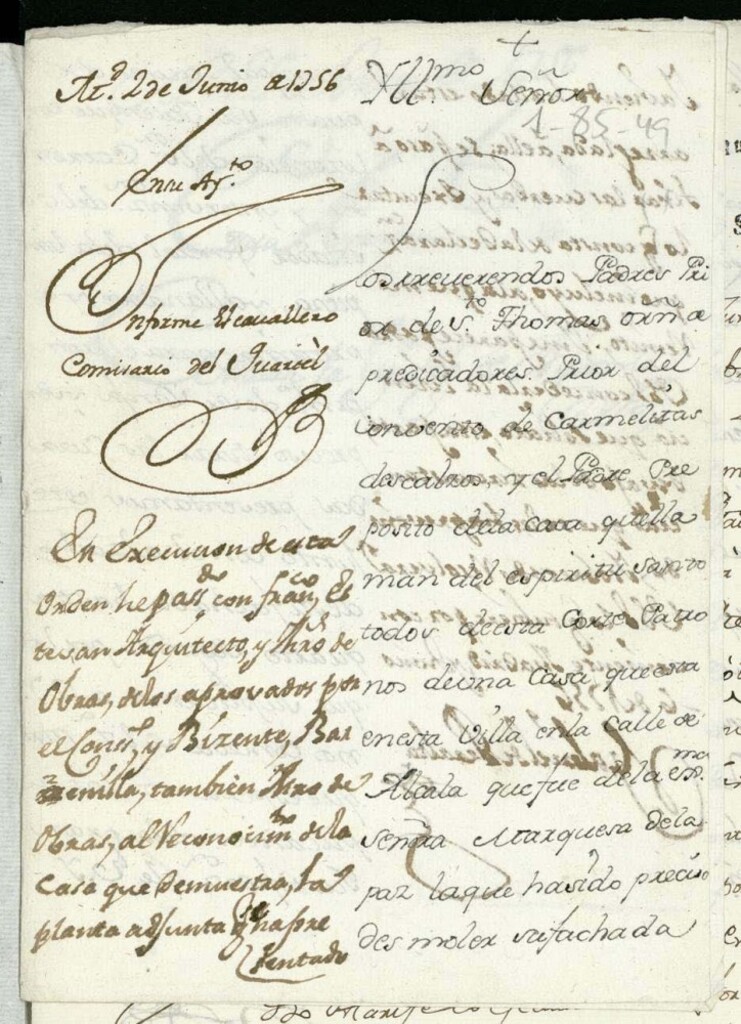 Md. 2 de Junio de 1756
En su Ayto
Informe el cavallero
Comisario del Quartèl
En Execucion de esta
Orden he passdo con franco Es
tevan Arquitecto, y Mro de
Obras, de los aprovados por
el Consl, y Bizente, Bar
zenilla, tambien Mro de
Obras, al Reconocimto de la
Casa que Demuestra, la
planta adjunta qe ha pre
sentado
+
Yllmo Señor
1-85-49
Los rreuerendos Padres Pri
or de Sto Thomas orn de
predicadores. Prior del
convento de Carmelitas
descalzos y el Padre Pre
posito de la casa que lla
man del espiritu santo
todos de esta Corte Patro
nos de una Casa que esta
en esta Villa en la calle de
Alcala que fue de la exma
señora Marquesa de la
paz la que ha sido preciso
desmoler su fachada